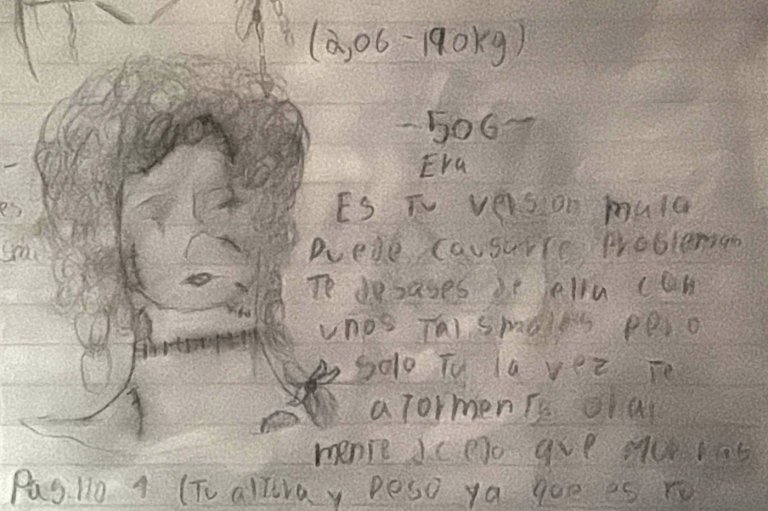 (2,06-190kg)
~506~
Eva
Es tu version mala
puede causarte problemas
te desases de ella con
unos talismales pero
solo tu la vez te
atormenta diai
mente que
Pasillo 1 (Tu altura y peso ya que es tu